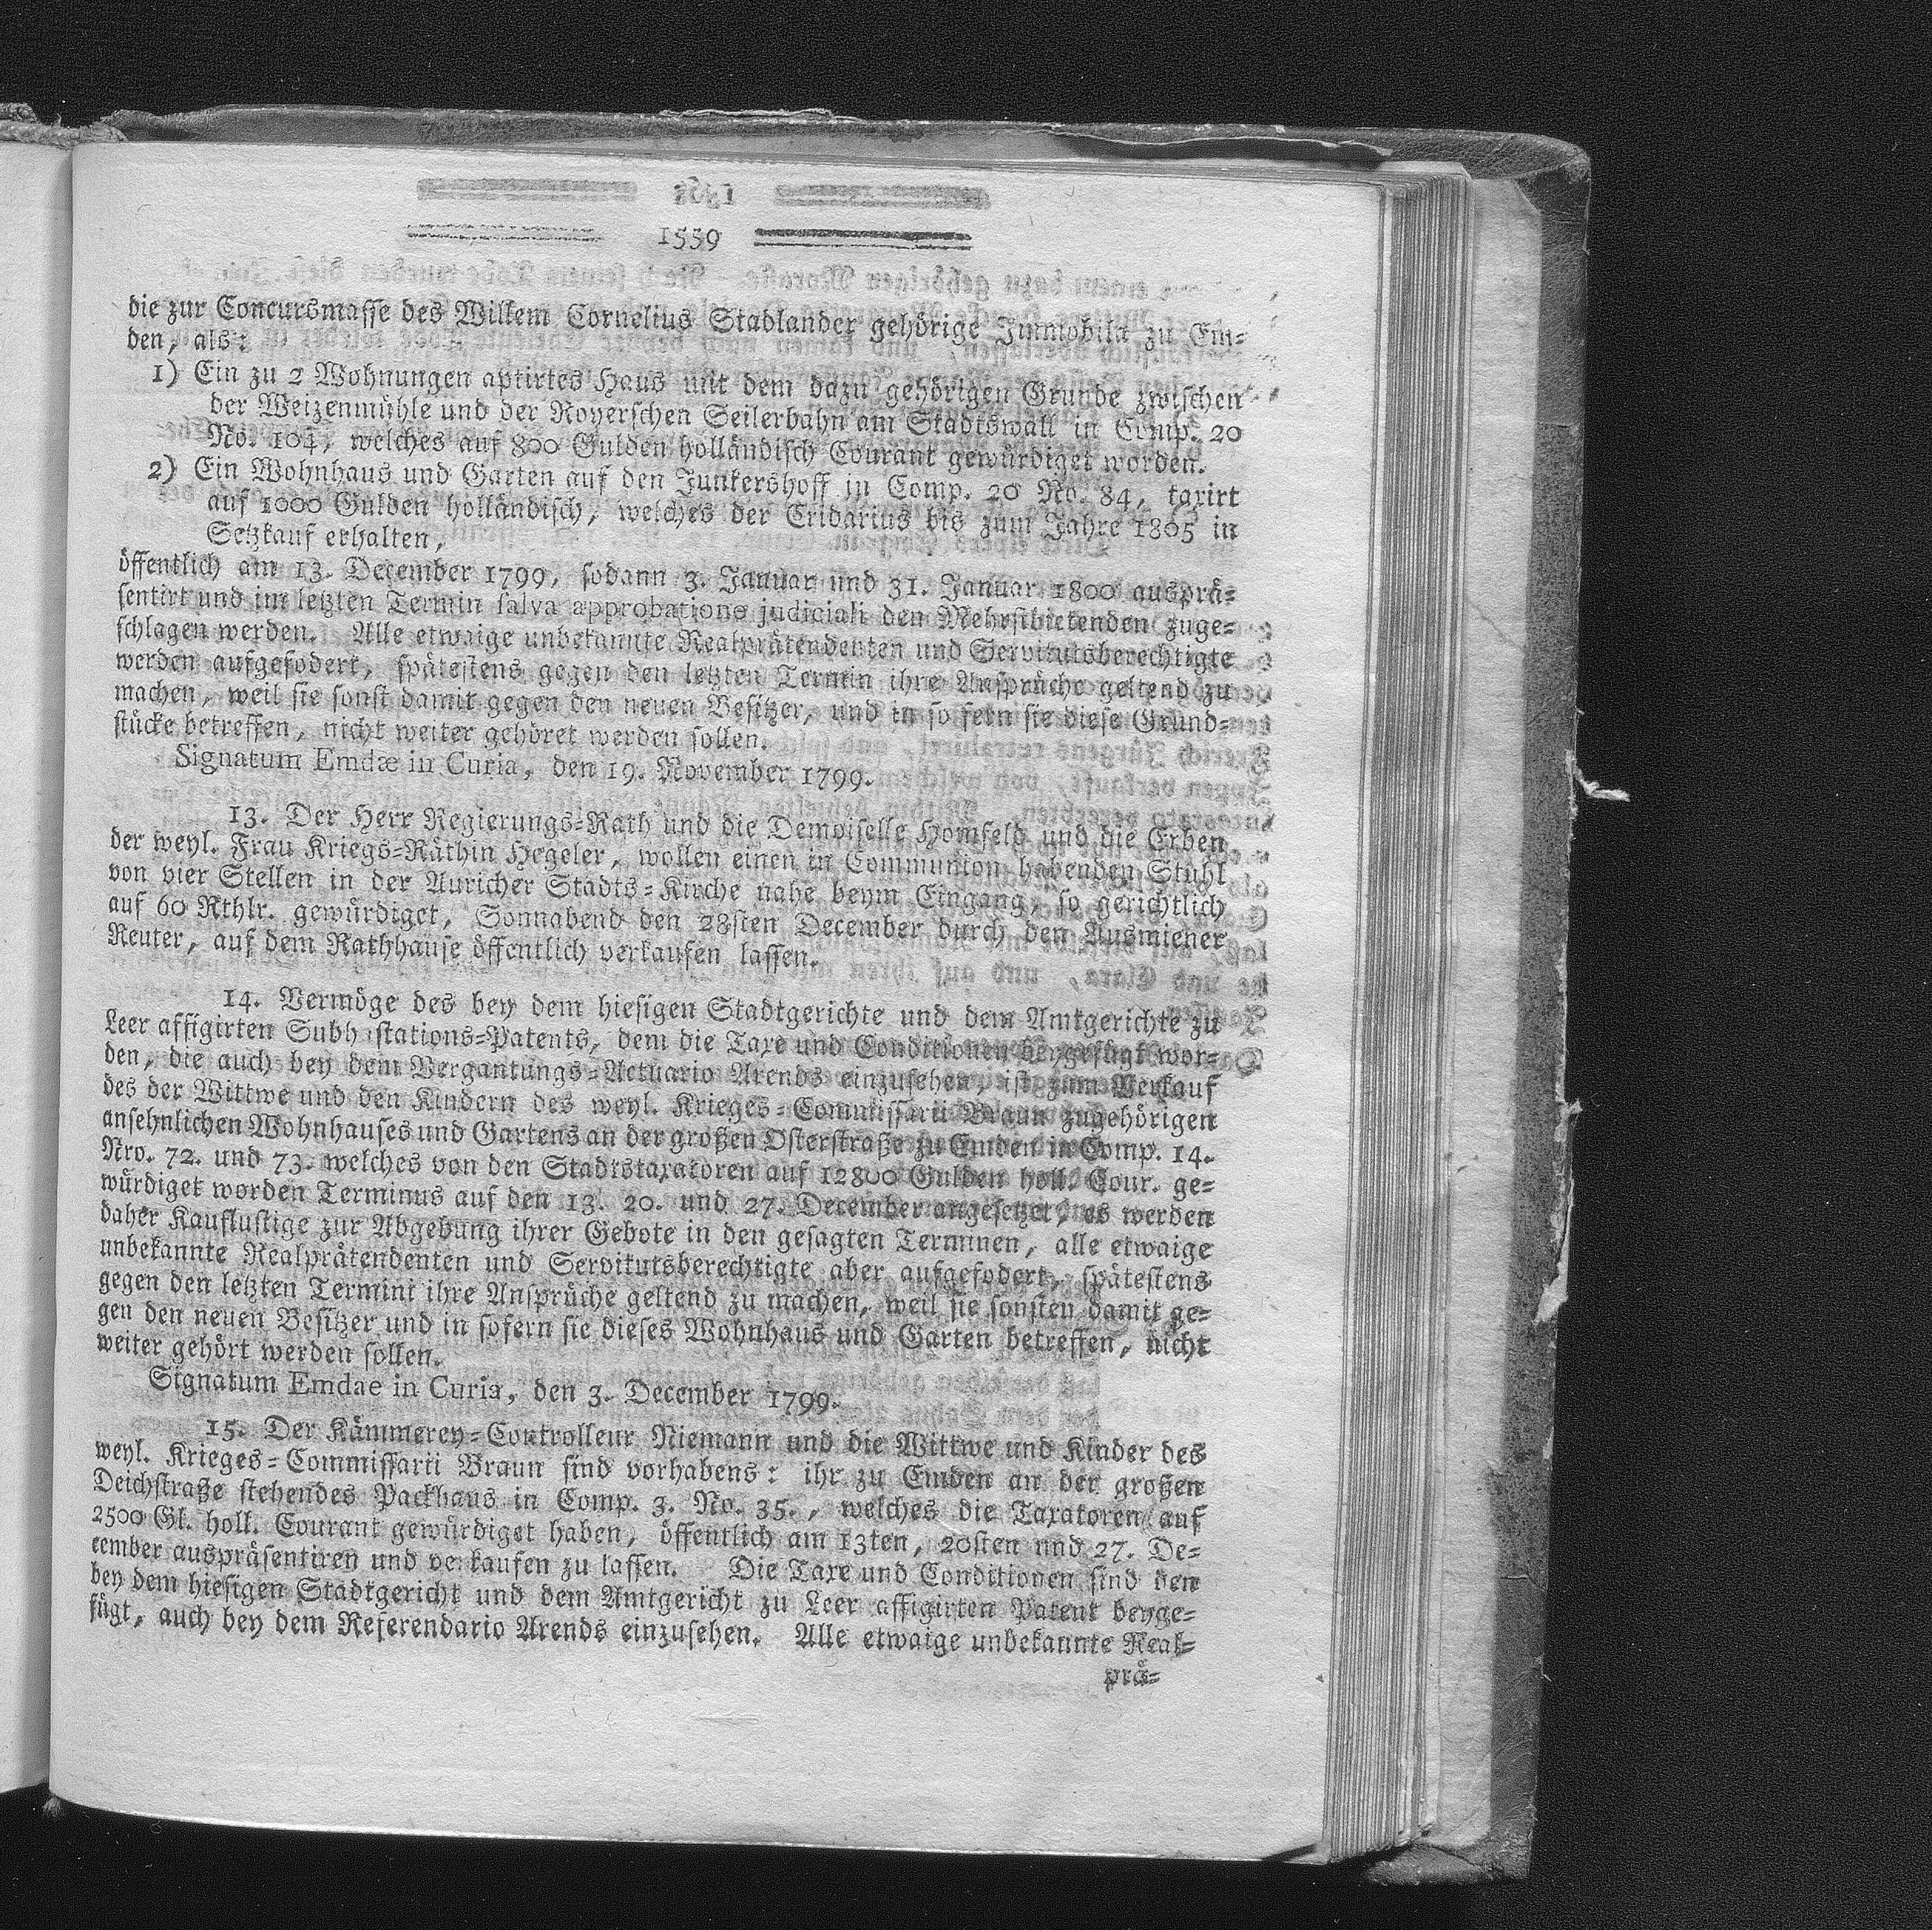 1559
die zur Concursmasse des Willem Cornelius Stadlander gehörige Immobila zu Em-
den, als:
1) Ein zu 2 Wohnungen aptirtes Haus mit dem dazu gehörigen Grunde zwischen
der Weizenmühle und der Royerschen Seilerbahn am Stadtswall in Comp. 20
No. 104, welches auf 800 Gulden holländisch Courant gewürdiget worden.
2) Ein Wohnhaus und Garten auf den Junkershoff in Comp. 20 No. 84, taxirt
auf 1000 Gulden holländisch, welches der Cridarius bis zum Jahre 1805 in
Setzkauf erhalten,
öffentlich am 13. December 1799, sodann 3. Januar und 31. Januar 1800 ausprä-
sentirt und im letzten Termin salva approbatione judiciali den Mehrstbietenden zuge-
schlagen werden. Alle etwaige unbekannte Realprätendenten und Servitutsberechtigte
werden aufgefodert, spätestens gegen den letzten Termin ihre Ansprüche geltend zu
machen, weil sie sonst damit gegen den neuen Besitzer, und in so fern sie diese Grund-
stücke betreffen, nicht weiter gehöret werden sollen.
Signatum Emdæ in Curia, den 19. November 1799.
13. Der Herr Regierungs-Rath und die Demoiselle Homfeld und die Erben
der weyl. Frau Kriegs-Räthin Hegeler, wollen einen in Communion habenden Stuhl
von vier Stellen in der Auricher Stadts-Kirche nahe beym Eingang, so gerichtlich
auf 60 Rthlr. gewürdiget, Sonnabend den 28sten December durch den Ausmiener
Reuter, auf dem Rathhause öffentlich verkaufen lassen.
14. Vermöge des bey dem hiesigen Stadtgerichte und dem Amtgerichte zu
Leer affigirten Subh stations-Patents, dem die Taxe und Conditionen beygefügt wor-
den, die auch bey dem Vergantungs-Actuario Arends einzusehen, ist zum Verkauf
des der Wittwe und den Kindern des weyl. Krieges-Commissarii Braun zugehörigen
ansehnlichen Wohnhauses und Gartens an der großen Osterstraße zu Emden in Comp. 14.
Nro. 72. und 73. welches von den Stadtstaxatoren auf 12800 Gulden holl. Cour. ge-
würdiget worden Terminus auf den 13. 20. und 27. December angesetzet, es werden
daher Kauflustige zur Abgebung ihrer Gebote in den gesagten Terminen, alle etwaige
unbekannte Realprätendenten und Servitutsberechtigte aber aufgefodert, spätestens
gegen den letzten Termini ihre Ansprüche geltend zu machen, weil sie sonsten damit ge-
gen den neuen Besitzer und in sofern sie dieses Wohnhaus und Garten betreffen, nicht
weiter gehört werden sollen.
Signatum Emdae in Curia, den 3. December 1799.
15. Der Kämmerey-Controlleur Niemann und die Wittwe und Kinder des
weyl. Krieges-Commissarii Braun sind vorhabens: ihr zu Emden an der großen
Deichstraße stehendes Packhaus in Comp. 3. No. 35., welches die Taxatoren auf
2500 Gl. holl. Courant gewürdiget haben, öffentlich am 13ten, 20sten und 27. De-
cember auspräsentiren und verkaufen zu lassen. Die Taxe und Conditionen sind den
bey dem hiesigen Stadtgericht und dem Amtgericht zu Leer affigirten Patent beyge-
fügt, auch bey dem Referendario Arends einzusehen. Alle etwaige unbekannte Real-
prä-